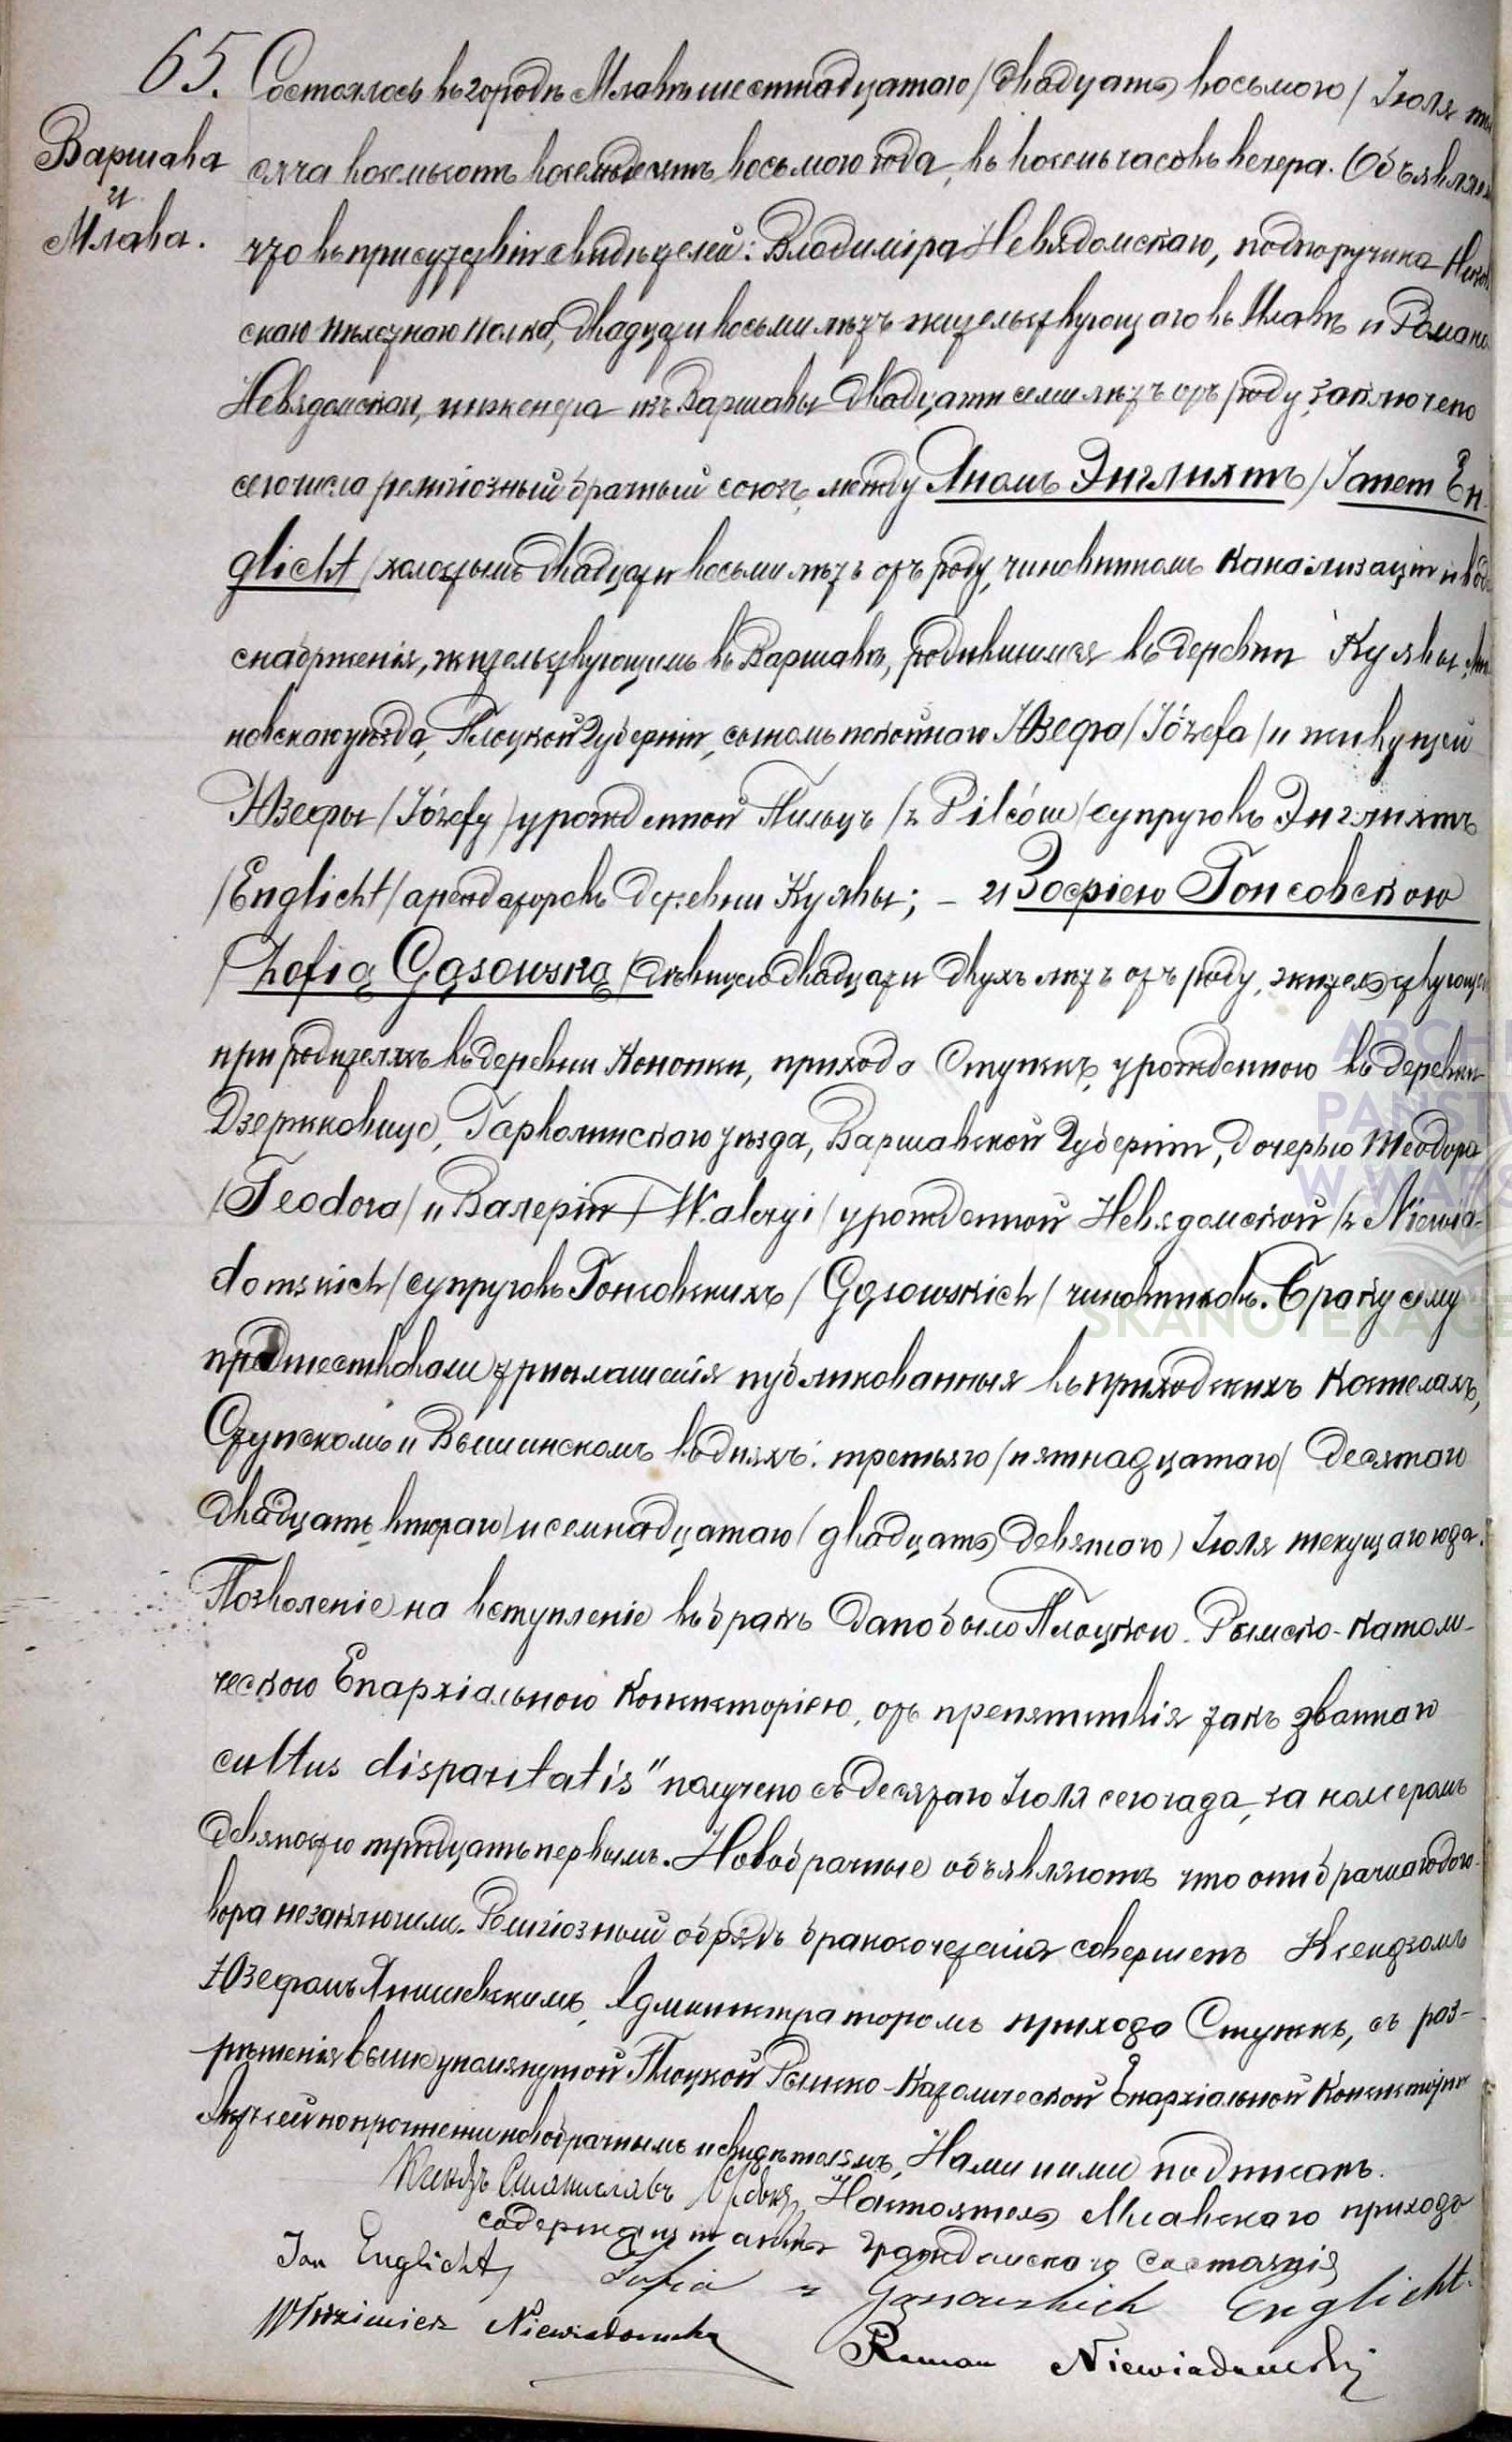 65. Состоялось въ городѣ Млавѣ шестнадцатаго /двадцать восьмого/ Іюля ты
Варшава
и
Млава.
сяча восемьсотъ восемьдесятъ восьмого года, въ восемь часовъ вечера. Объявляемъ
что въ присутствіи свидѣтелей: Владиміра Невядомскаго, подпоручика
скаго пѣхотнаго полка, двадцати восьми лѣтъ жительствующаго въ Млавѣ и Романа
Невядомскаго, инженера изъ Варшавы двадцати семи лѣтъ отъ роду, заключено
сего числа религіозный брачный союзъ, между Яномъ Энглихтъ /Janem En-
glicht/ холостымъ двадцати восьми лѣтъ отъ роду, чиновникомъ канализаціи и водо
снабженія, жительствующимъ въ Варшавѣ, родившимся въ деревни Куявы,
новскаго уѣзда, Плоцкой Губерніи, сыномъ покойнаго Юзефа /Józefa/ и живущей
Юзефы /Józefy/ урожденной Пильцъ /z Pilców/ супруговъ Энглихтъ
/Englicht/ арендаторовъ деревни Куявы; – и Зофіею Гонсовскою
/Zofią Gąsowską/ дѣвицею двадцати двухъ лѣтъ отъ роду, жительствующею
при родителяхъ въ деревни Конопки, прихода Ступскъ, урожденною въ деревни
Дзержковице, Гарволинскаго уѣзда, Варшавской Губерніи, дочерью Теодора
/Teodora/ и Валеріи /Waleryi/ урожденной Невядомской /z Niewia-
domskich/ супруговъ Гонсовскихъ /Gąsowskich/ чиновниковъ. Браку сему
предшествовали три оглашенія публикованныя въ приходскихъ костелахъ,
Ступскомъ и Вышинскомъ въ дняхъ: третьяго /пятнадцатаго/ десятаго
двадцать втораго/ и семнадцатаго /двадцать девятого/ Іюля текущаго года.
Позволеніе на вступленіе въ бракъ дано было Плоцкою Римско-католи-
ческою Епархіальною Консисторіею, отъ препятствія такъ званнаго
cultus disparitatis" получено съ десятаго Іюля сего года, за номеромъ
девяносто тридцать первымъ. Новобрачные объявляютъ что они брачнаго дого-
вора не заключили. Религіозный обрядъ бракосочетанія совершенъ Ксендзомъ
Юзефомъ Янишевскимъ, Администраторомъ прихода Ступскъ, съ раз-
рѣшенія выше упомянутой Плоцкой Римско-Католической Епархіальной Консисторіи
Актъ сей по прочтеніи новобрачнымъ и свидѣтелямъ, Нами и ими подписанъ.
Ксендзъ Станиславъ Настоятель Млавскаго прихода
содержащій акты гражданскаго состоянія
Jan Englicht, Zofia z Gąsowskich Englicht.
Włodzimierz Niewiadomski Roman Niewiadomski